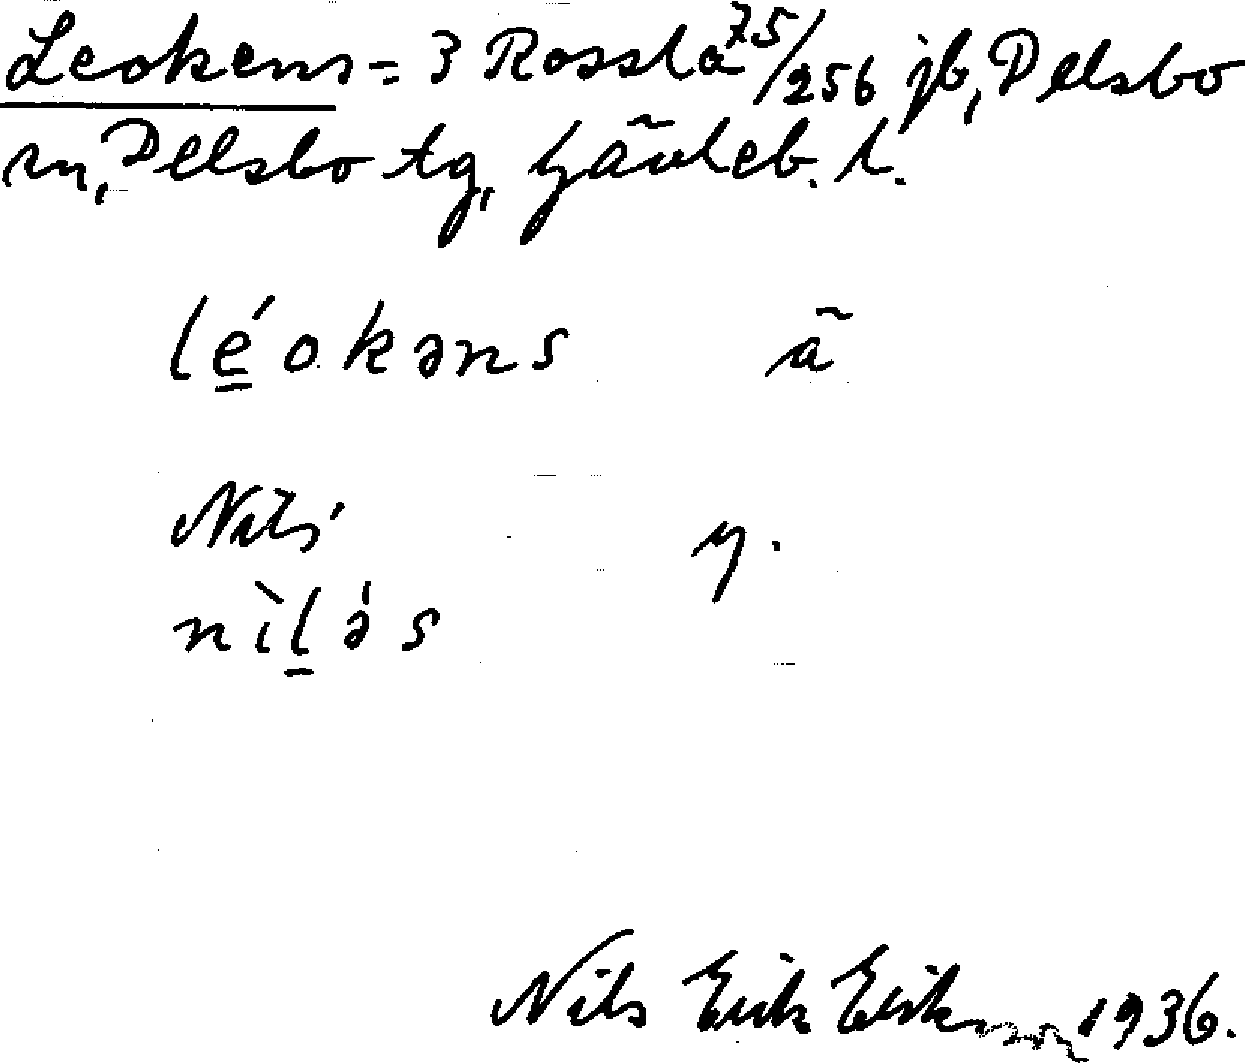 Leokens = 3 Rossla 75/256 jb, Delsbo
sn, Delsbo tg, Gävleb. l.
léokəns ä
Nils' y.
nìlə́s
Nils Erik Erikson 1936.